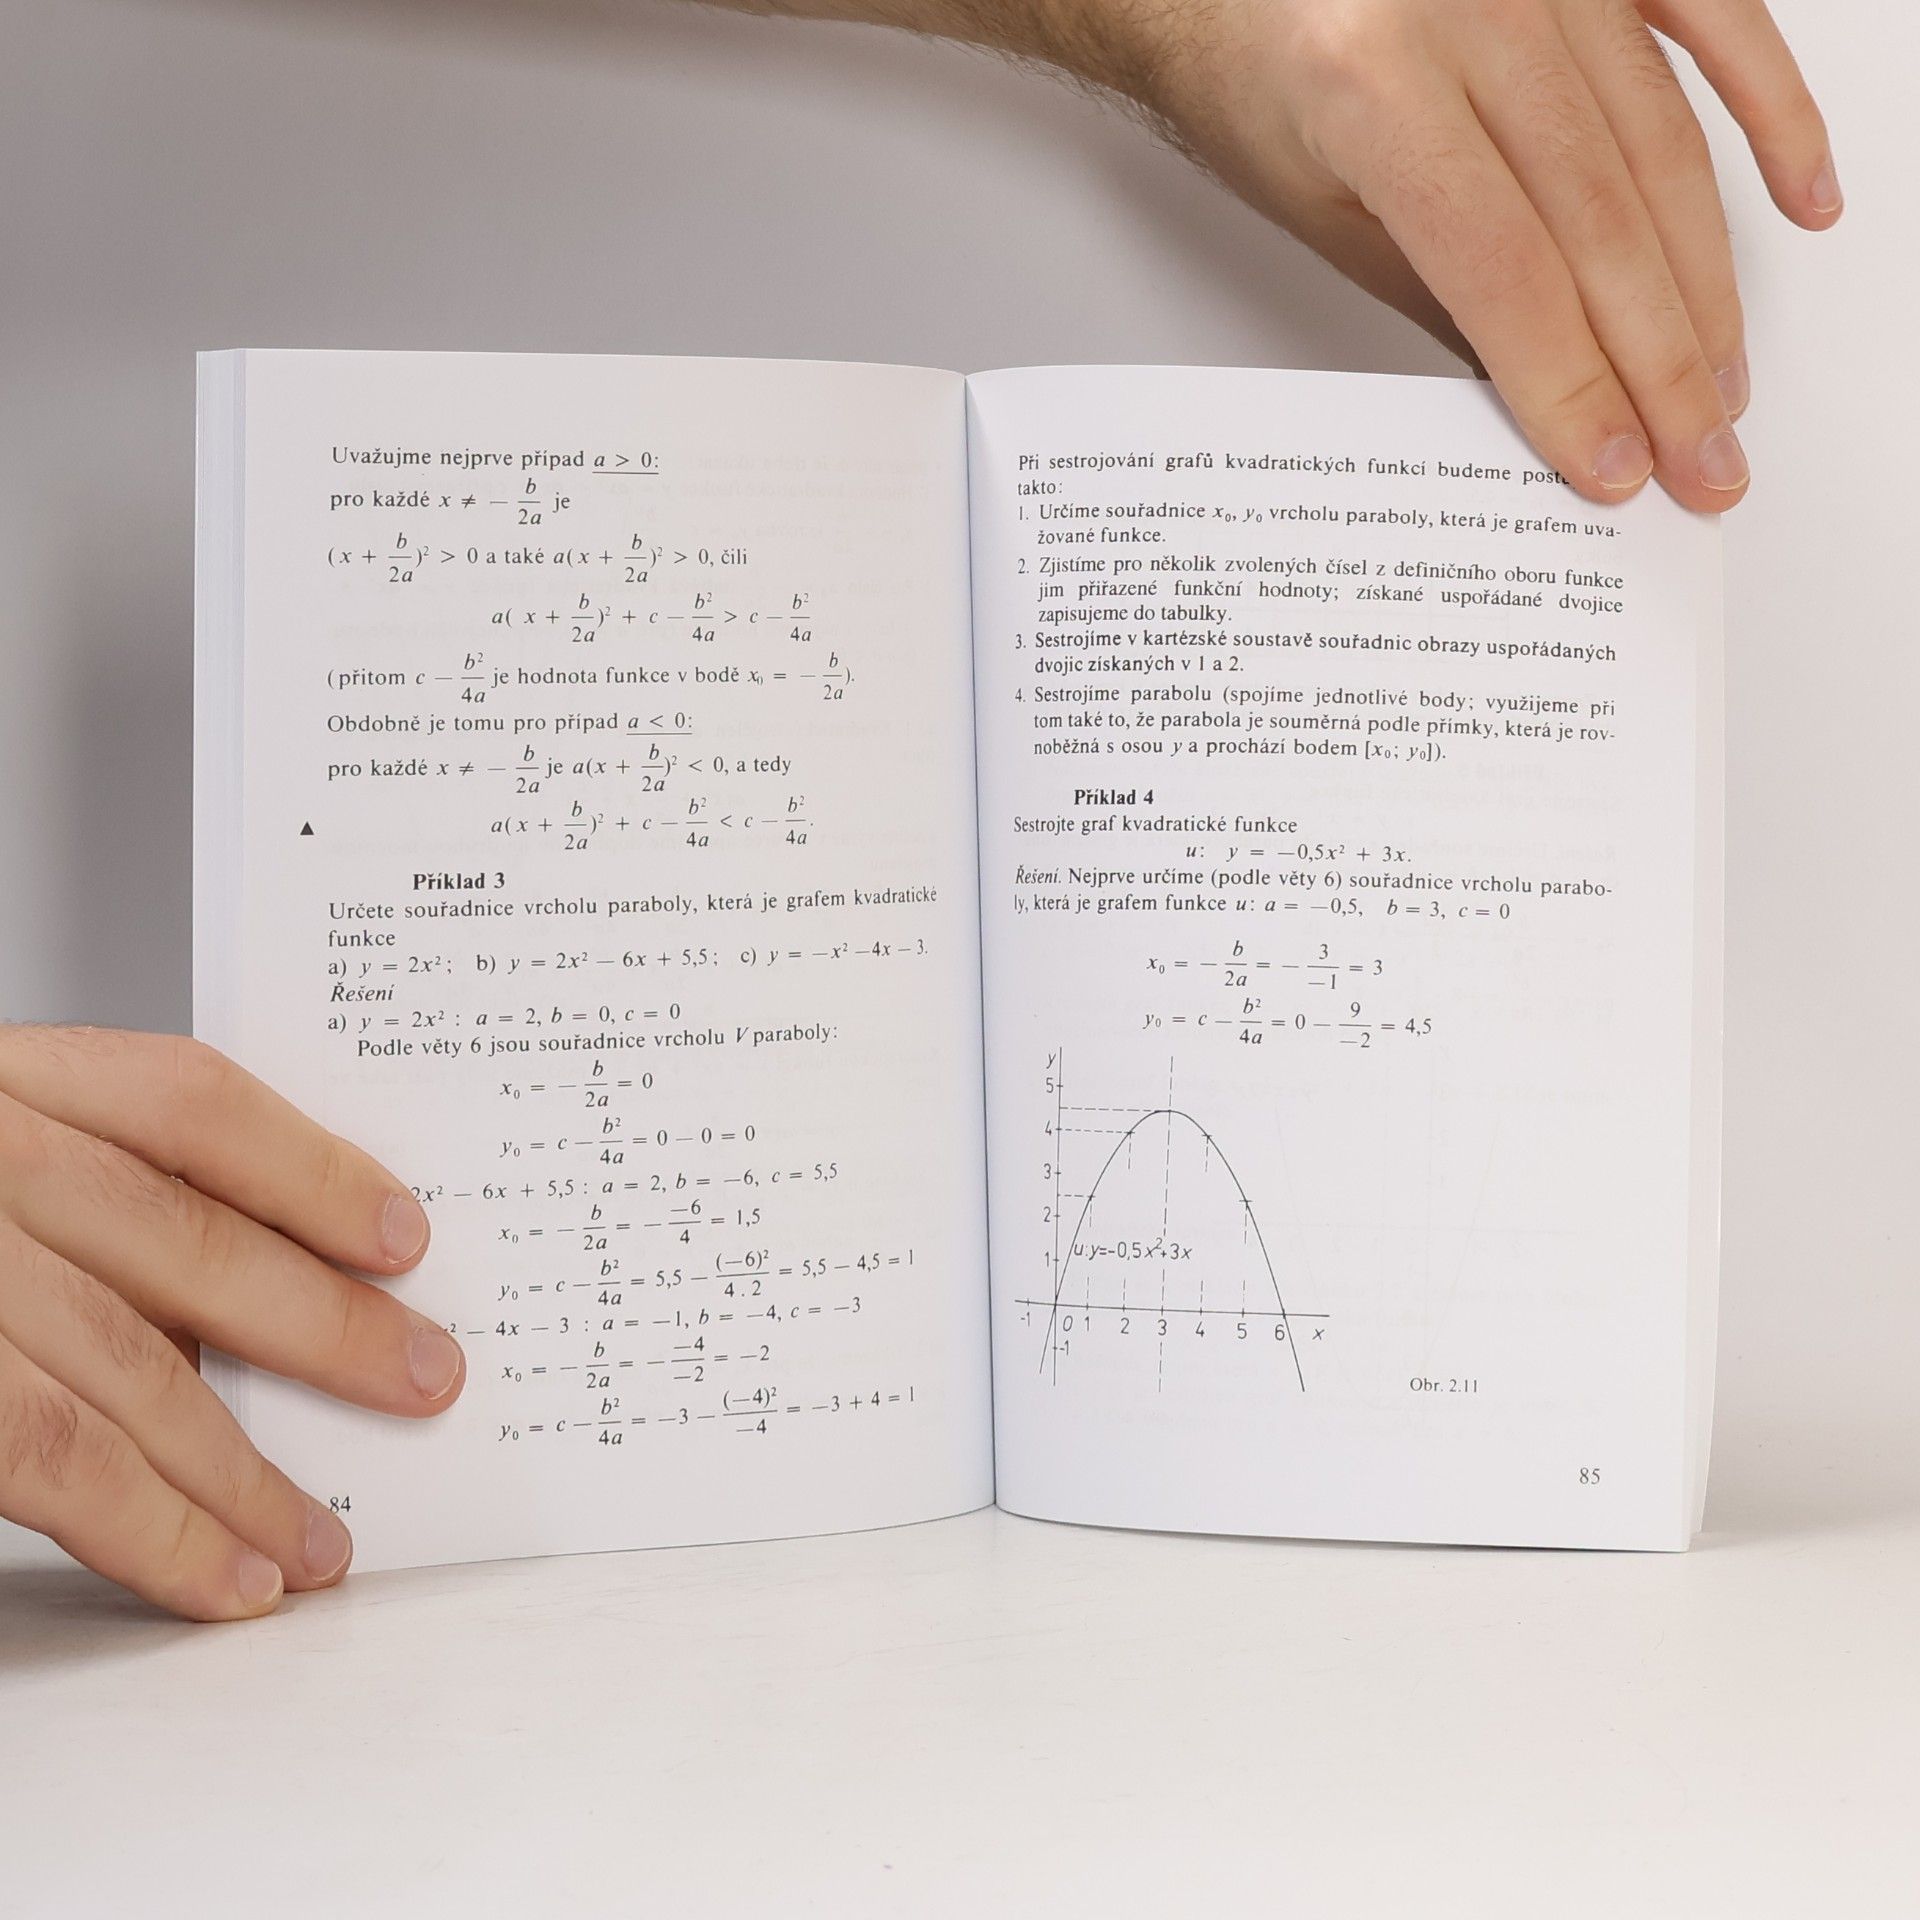 Uvažujme nejprve případ a > 0:
pro každé x ≠ − b/2a je
(x + b/2a)² > 0 a také a(x + b/2a)² > 0, čili
a( x + b/2a)² + c − b²/4a > c − b²/4a
(přitom c − b²/4a je hodnota funkce v bodě x₀ = − b/2a).
Obdobně je tomu pro případ a < 0:
pro každé x ≠ − b/2a je a(x + b/2a)² < 0, a tedy
▲ a(x + b/2a)² + c − b²/4a < c − b²/4a.
Příklad 3
Určete souřadnice vrcholu paraboly, která je grafem kvadratické
funkce
a) y = 2x²; b) y = 2x² − 6x + 5,5; c) y = −x² −4x − 3.
Řešení
a) y = 2x² : a = 2, b = 0, c = 0
Podle věty 6 jsou souřadnice vrcholu V paraboly:
x₀ = − b/2a = 0
y₀ = c − b²/4a = 0 − 0 = 0
2x² − 6x + 5,5 : a = 2, b = −6, c = 5,5
x₀ = − b/2a = − −6/4 = 1,5
y₀ = c − b²/4a = 5,5 − (−6)²/4 . 2 = 5,5 − 4,5 = 1
² − 4x − 3 : a = −1, b = −4, c = −3
x₀ = − b/2a = − −4/−2 = −2
y₀ = c − b²/4a = −3 − (−4)²/−4 = −3 + 4 = 1
84
Při sestrojování grafů kvadratických funkcí budeme
takto:
1. Určíme souřadnice x₀, y₀ vrcholu paraboly, která je grafem uva-
žované funkce.
2. Zjistíme pro několik zvolených čísel z definičního oboru funkce
jim přiřazené funkční hodnoty; získané uspořádané dvojice
zapisujeme do tabulky.
3. Sestrojíme v kartézské soustavě souřadnic obrazy uspořádaných
dvojic získaných v 1 a 2.
4. Sestrojíme parabolu (spojíme jednotlivé body; využijeme při
tom také to, že parabola je souměrná podle přímky, která je rov-
noběžná s osou y a prochází bodem [x₀; y₀]).
Příklad 4
Sestrojte graf kvadratické funkce
u: y = −0,5x² + 3x.
Řešení. Nejprve určíme (podle věty 6) souřadnice vrcholu parabo-
ly, která je grafem funkce u: a = −0,5, b = 3, c = 0
x₀ = − b/2a = − 3/−1 = 3
y₀ = c − b²/4a = 0 − 9/−2 = 4,5
y
5
4
3
2
1
u:y=-0,5x²+3x
-1 0 1 2 3 4 5 6 x
-1
Obr. 2.11
85